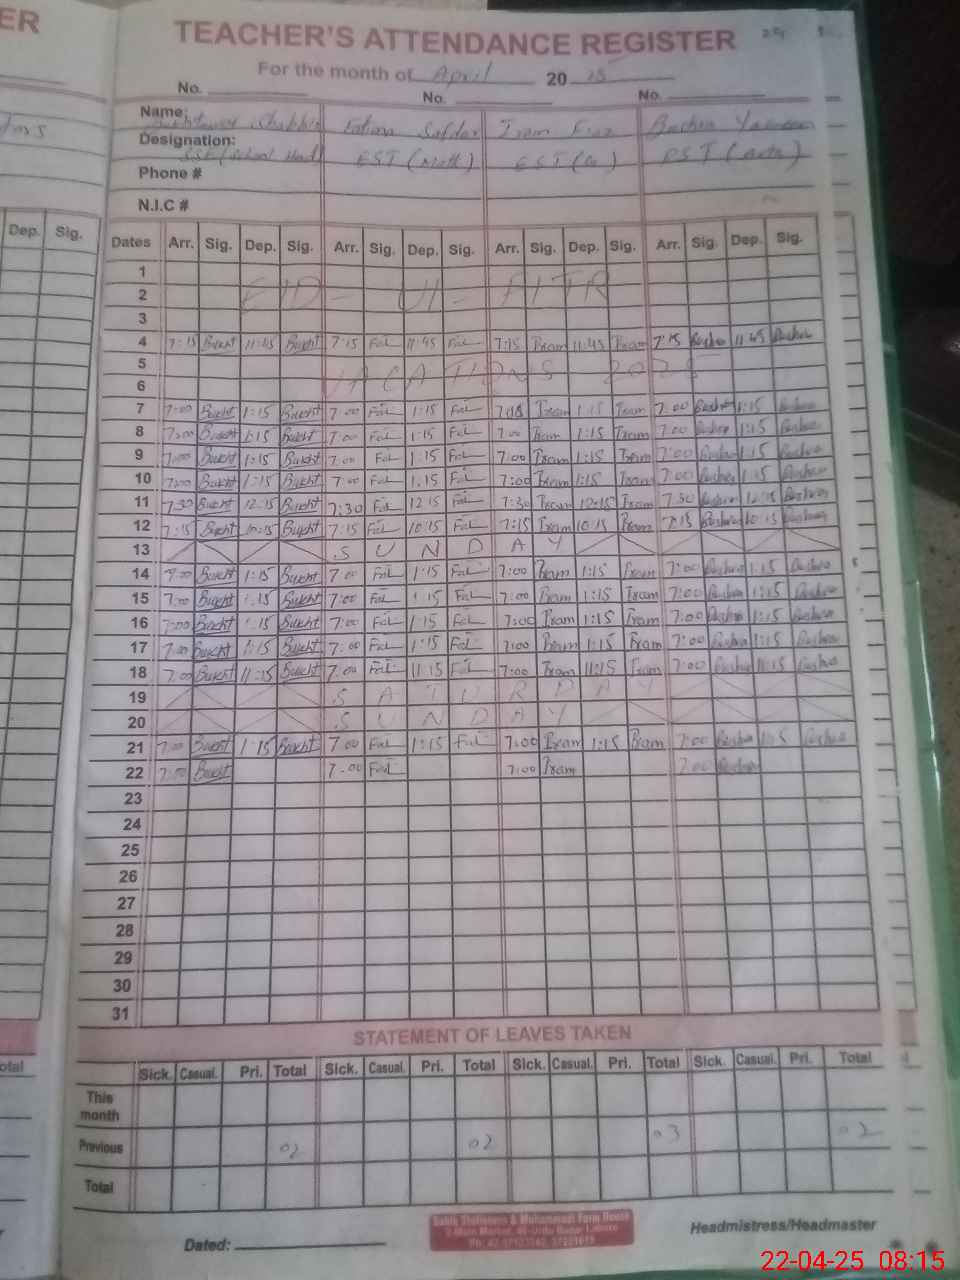 ER
TEACHER'S ATTENDANCE REGISTER
For the month of April 20 25
No. No. No.
Name: Shabbir Fatima Safdar Iram Bushra
Designation: SSE (School Head) EST (Math) EST ( ) PST (Arts)
Phone #
N.I.C #
Dep. Sig.
Dates Arr. Sig. Dep. Sig. Arr. Sig. Dep. Sig. Arr. Sig. Dep. Sig. Arr. Sig. Dep. Sig.
1
2 EID - UL - FITR
3
4 7:15 Bukht 11:45 Bukht 7:15 Fat 11:45 Fat 7:15 Iram 11:45 Iram 7:15 Bushra 11:45 Bushra
5 VACATIONS 2025
6
7 7:00 Bukht 1:15 Bukht 7:00 Fat 1:15 Fat Iram 1:15 Iram 7:00 Bushra 1:15 Bushra
8 7:00 Bukht 1:15 Bukht 7:00 Fat 1:15 Fat 7:00 Iram 1:15 Iram 7:00 Bushra 1:15 Bushra
9 7:00 Bukht 1:15 Bukht 7:00 Fat 1:15 Fat 7:00 Iram 1:15 Iram 7:00 Bushra 1:15 Bushra
10 7:00 Bukht 1:15 Bukht 7:00 Fat 1.15 Fat 7:00 Iram 1:15 Iram 7:00 Bushra 1:15 Bushra
11 7:30 Bukht 12:15 Bukht 7:30 Fat 12 15 Fat 7:30 Iram 12:15 Iram 7:30 Bushra 12:15 Bushra
12 7:15 Bukht 10:15 Bukht 7:15 Fat 10:15 Fat 7:15 Iram 10:15 Iram 7:15 Bushra 10:15 Bushra
13 S U N D A Y
14 Bukht 1:15 Bukht 7:00 Fat 1:15 Fat 7:00 Iram 1:15 Iram 7:00 Bushra 1:15 Bushra
15 7:00 Bukht 1:15 Bukht 7:00 Fat 1:15 Fat 7:00 Iram 1:15 Iram 7:00 Bushra 1:15 Bushra
16 7:00 Bukht 1:15 Bukht 7:00 Fat 1:15 Fat 7:00 Iram 1:15 Iram 7:00 Bushra 1:15 Bushra
17 7:00 Bukht 1:15 Bukht 7:00 Fat 1:15 Fat 7:00 Iram 1:15 Iram 7:00 Bushra 1:15 Bushra
18 7:00 Bukht 11:15 Bukht 7:00 Fat 11:15 Fat 7:00 Iram 11:15 Iram 7:00 Bushra 11:15 Bushra
19 S A T U R D A Y
20 S U N D A Y
21 7:00 Bukht 1:15 Bukht 7:00 Fat 1:15 Fat 7:00 Iram 1:15 Iram 7:00 Bushra 1:15 Bushra
22 7:00 Bukht 7:00 Fat 7:00 Iram 7:00 Bushra
23
24
25
26
27
28
29
30
31
STATEMENT OF LEAVES TAKEN
Sick. Casual. Pri. Total Sick. Casual. Pri. Total Sick. Casual. Pri. Total Sick. Casual. Pri. Total
This month
Previous 02 02 03 02
Total
Dated: Headmistress/Headmaster
22-04-25 08:15